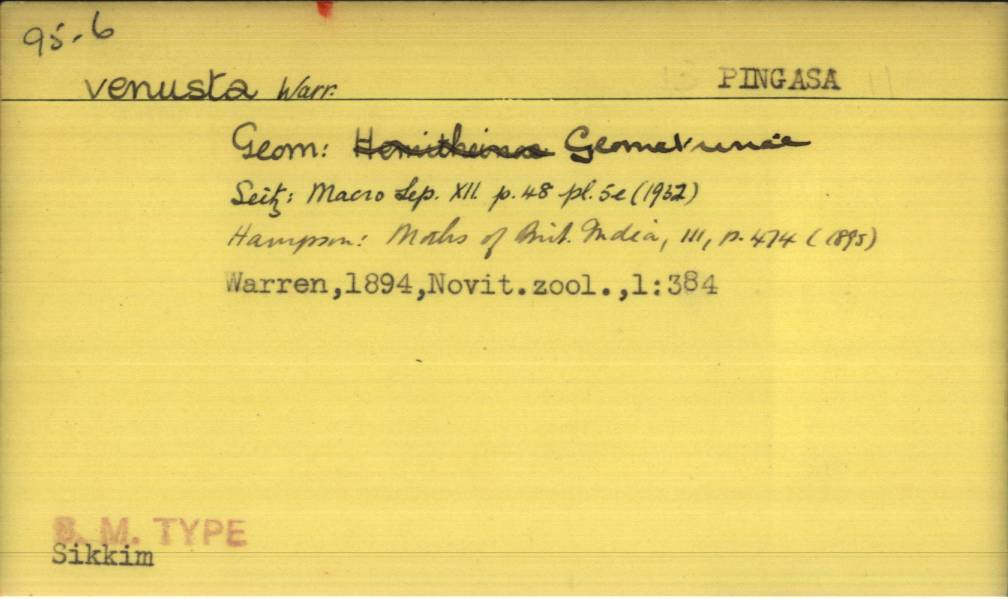 95.6
venusta Warr. PINGASA
Geom: Hemitheinae Geometrinae
Seitz: Macro Lep. XII. p. 48 pl. 5e (1932)
Hampson: Moths of Brit. India, III, p. 474 (1895)
Warren,1894,Novit.zool.,1:384
B. M. TYPE
Sikkim